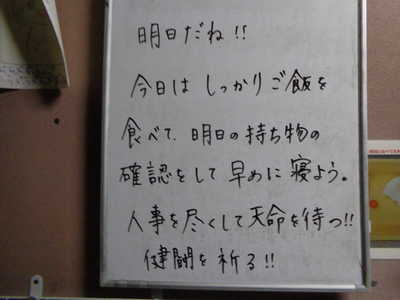 明日だね!!
今日は しっかりご飯を
食べて、明日の持ち物の
確認をして早めに寝よう。
人事を尽くして天命を待つ!!
健闘を祈る!!